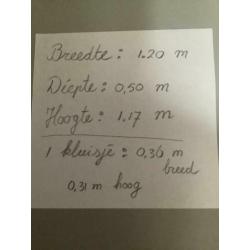 Breedte : 1.20 m
Diepte : 0,50 m
Hoogte : 1.17 m
1 kluisje : 0,36 m
breed
0,31 m hoog